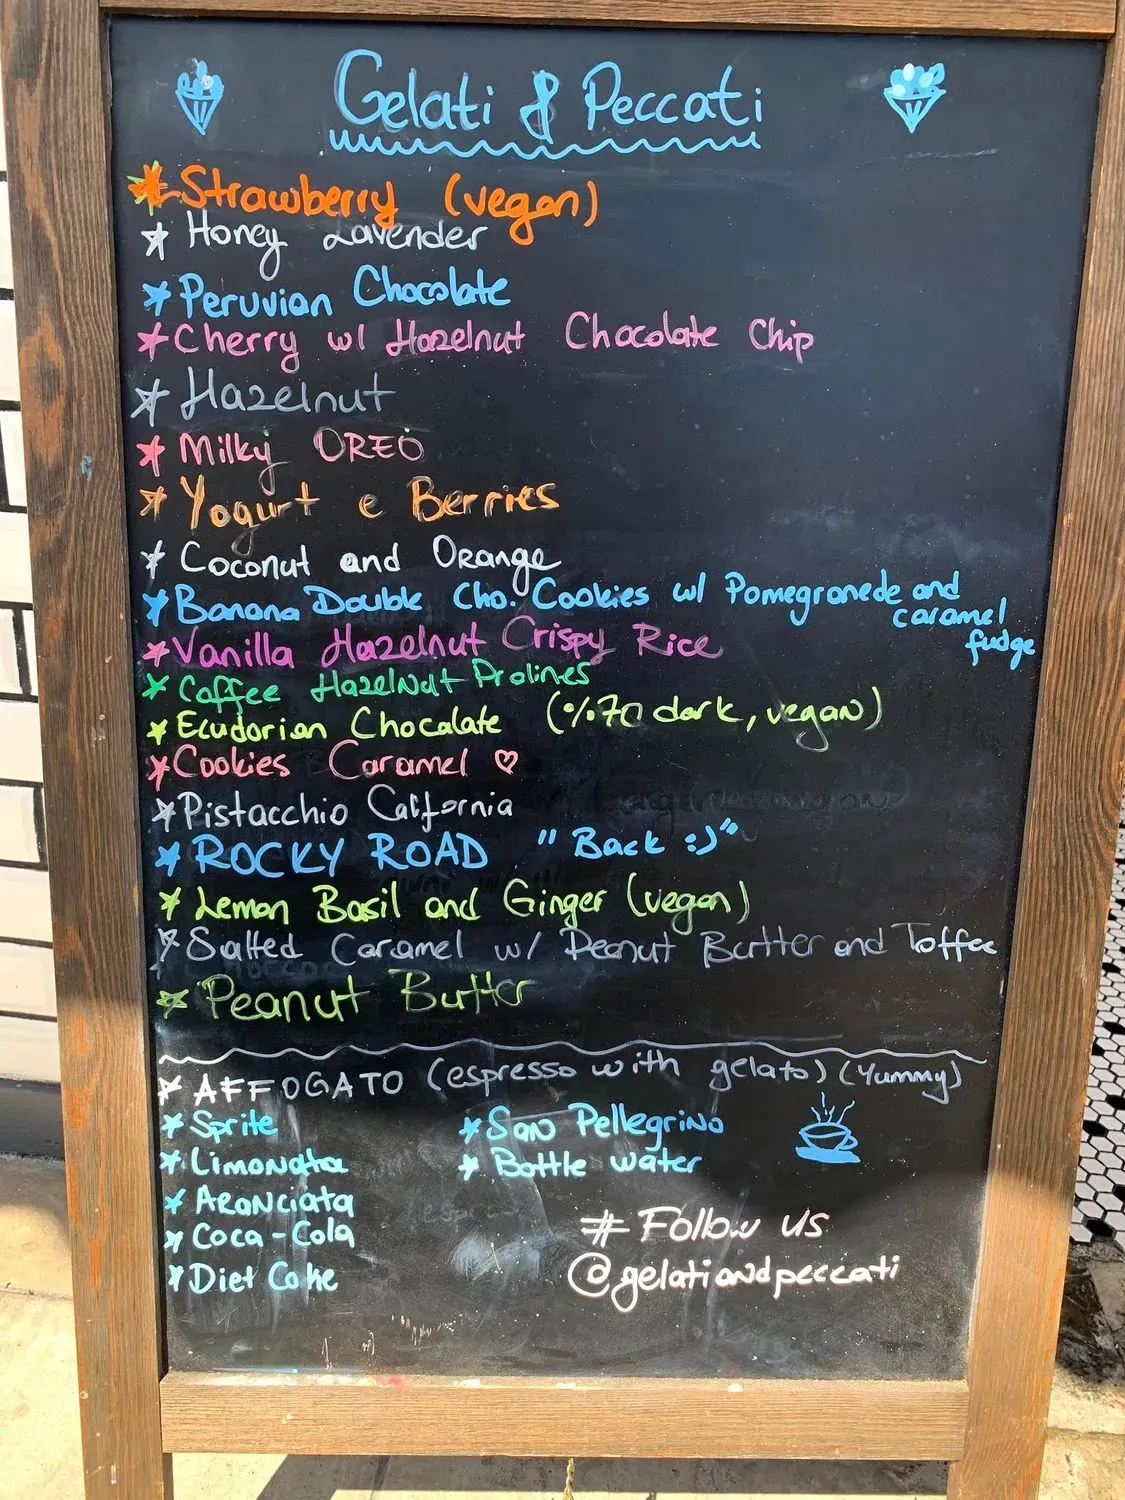 Gelati & Peccati
* Strawberry (vegan)
* Honey Lavender
* Peruvian Chocolate
* Cherry w/ Hazelnut Chocolate Chip
* Hazelnut
* Milky OREO
* Yogurt e Berries
* Coconut and Orange
* Banana Double Cho. Cookies w/ Pomegranede and
caramel
fudge
* Vanilla Hazelnut Crispy Rice
* Coffee Hazelnut Pralines
* Ecudorian Chocalate (%70 dark, vegan)
* Cookies Caramel ♡
* Pistacchio California
* ROCKY ROAD "Back :)"
* Lemon Basil and Ginger (vegan)
* Salted Caramel w/ Peanut Butter and Toffee
* Peanut Butter
* AFFOGATO (espresso with gelato) (Yummy)
* Sprite * San Pellegrino
* Limonata * Bottle water
* Aranciata
* Coca-Cola
* Diet Coke
# Follow us
@gelatiandpeccati